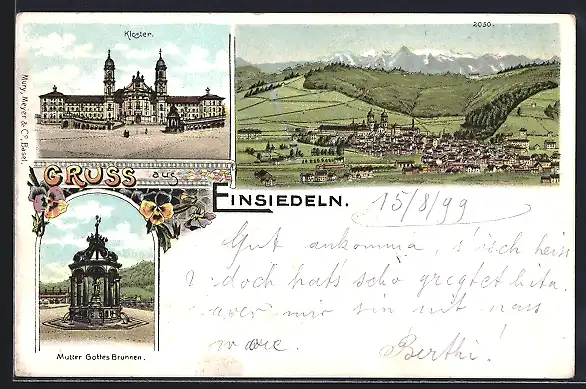 Kloster.
2050.
Mury, Meyer & Co, Basel.
GRUSS aus
EINSIEDELN.
15/8/99
Gut ankomma, s'isch heiss
doch hat's scho gregtet hita.
aver mir sin nit nass
Berthi!
Mutter Gottes Brunnen.